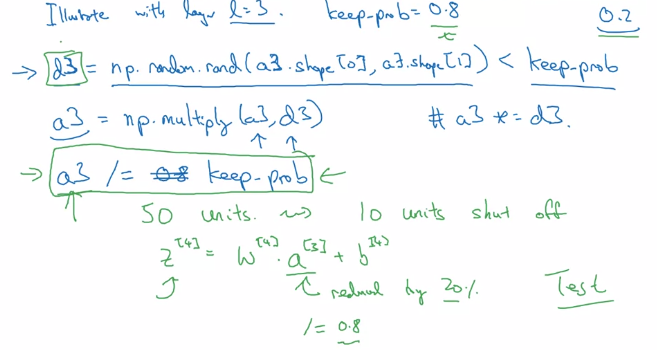 Illustrate with layer l=3. keep-prob = 0.8 0.2
→ d3 = np.random.rand(a3.shape[0], a3.shape[1]) < keep-prob
a3 = np.multiply(a3, d3) # a3 *= d3.
→ a3 /= 0.8 keep-prob ←
50 units. ⇝ 10 units shut off
z^[4] = W^[4] · a^[3] + b^[4]
reduced by 20%. Test
/= 0.8